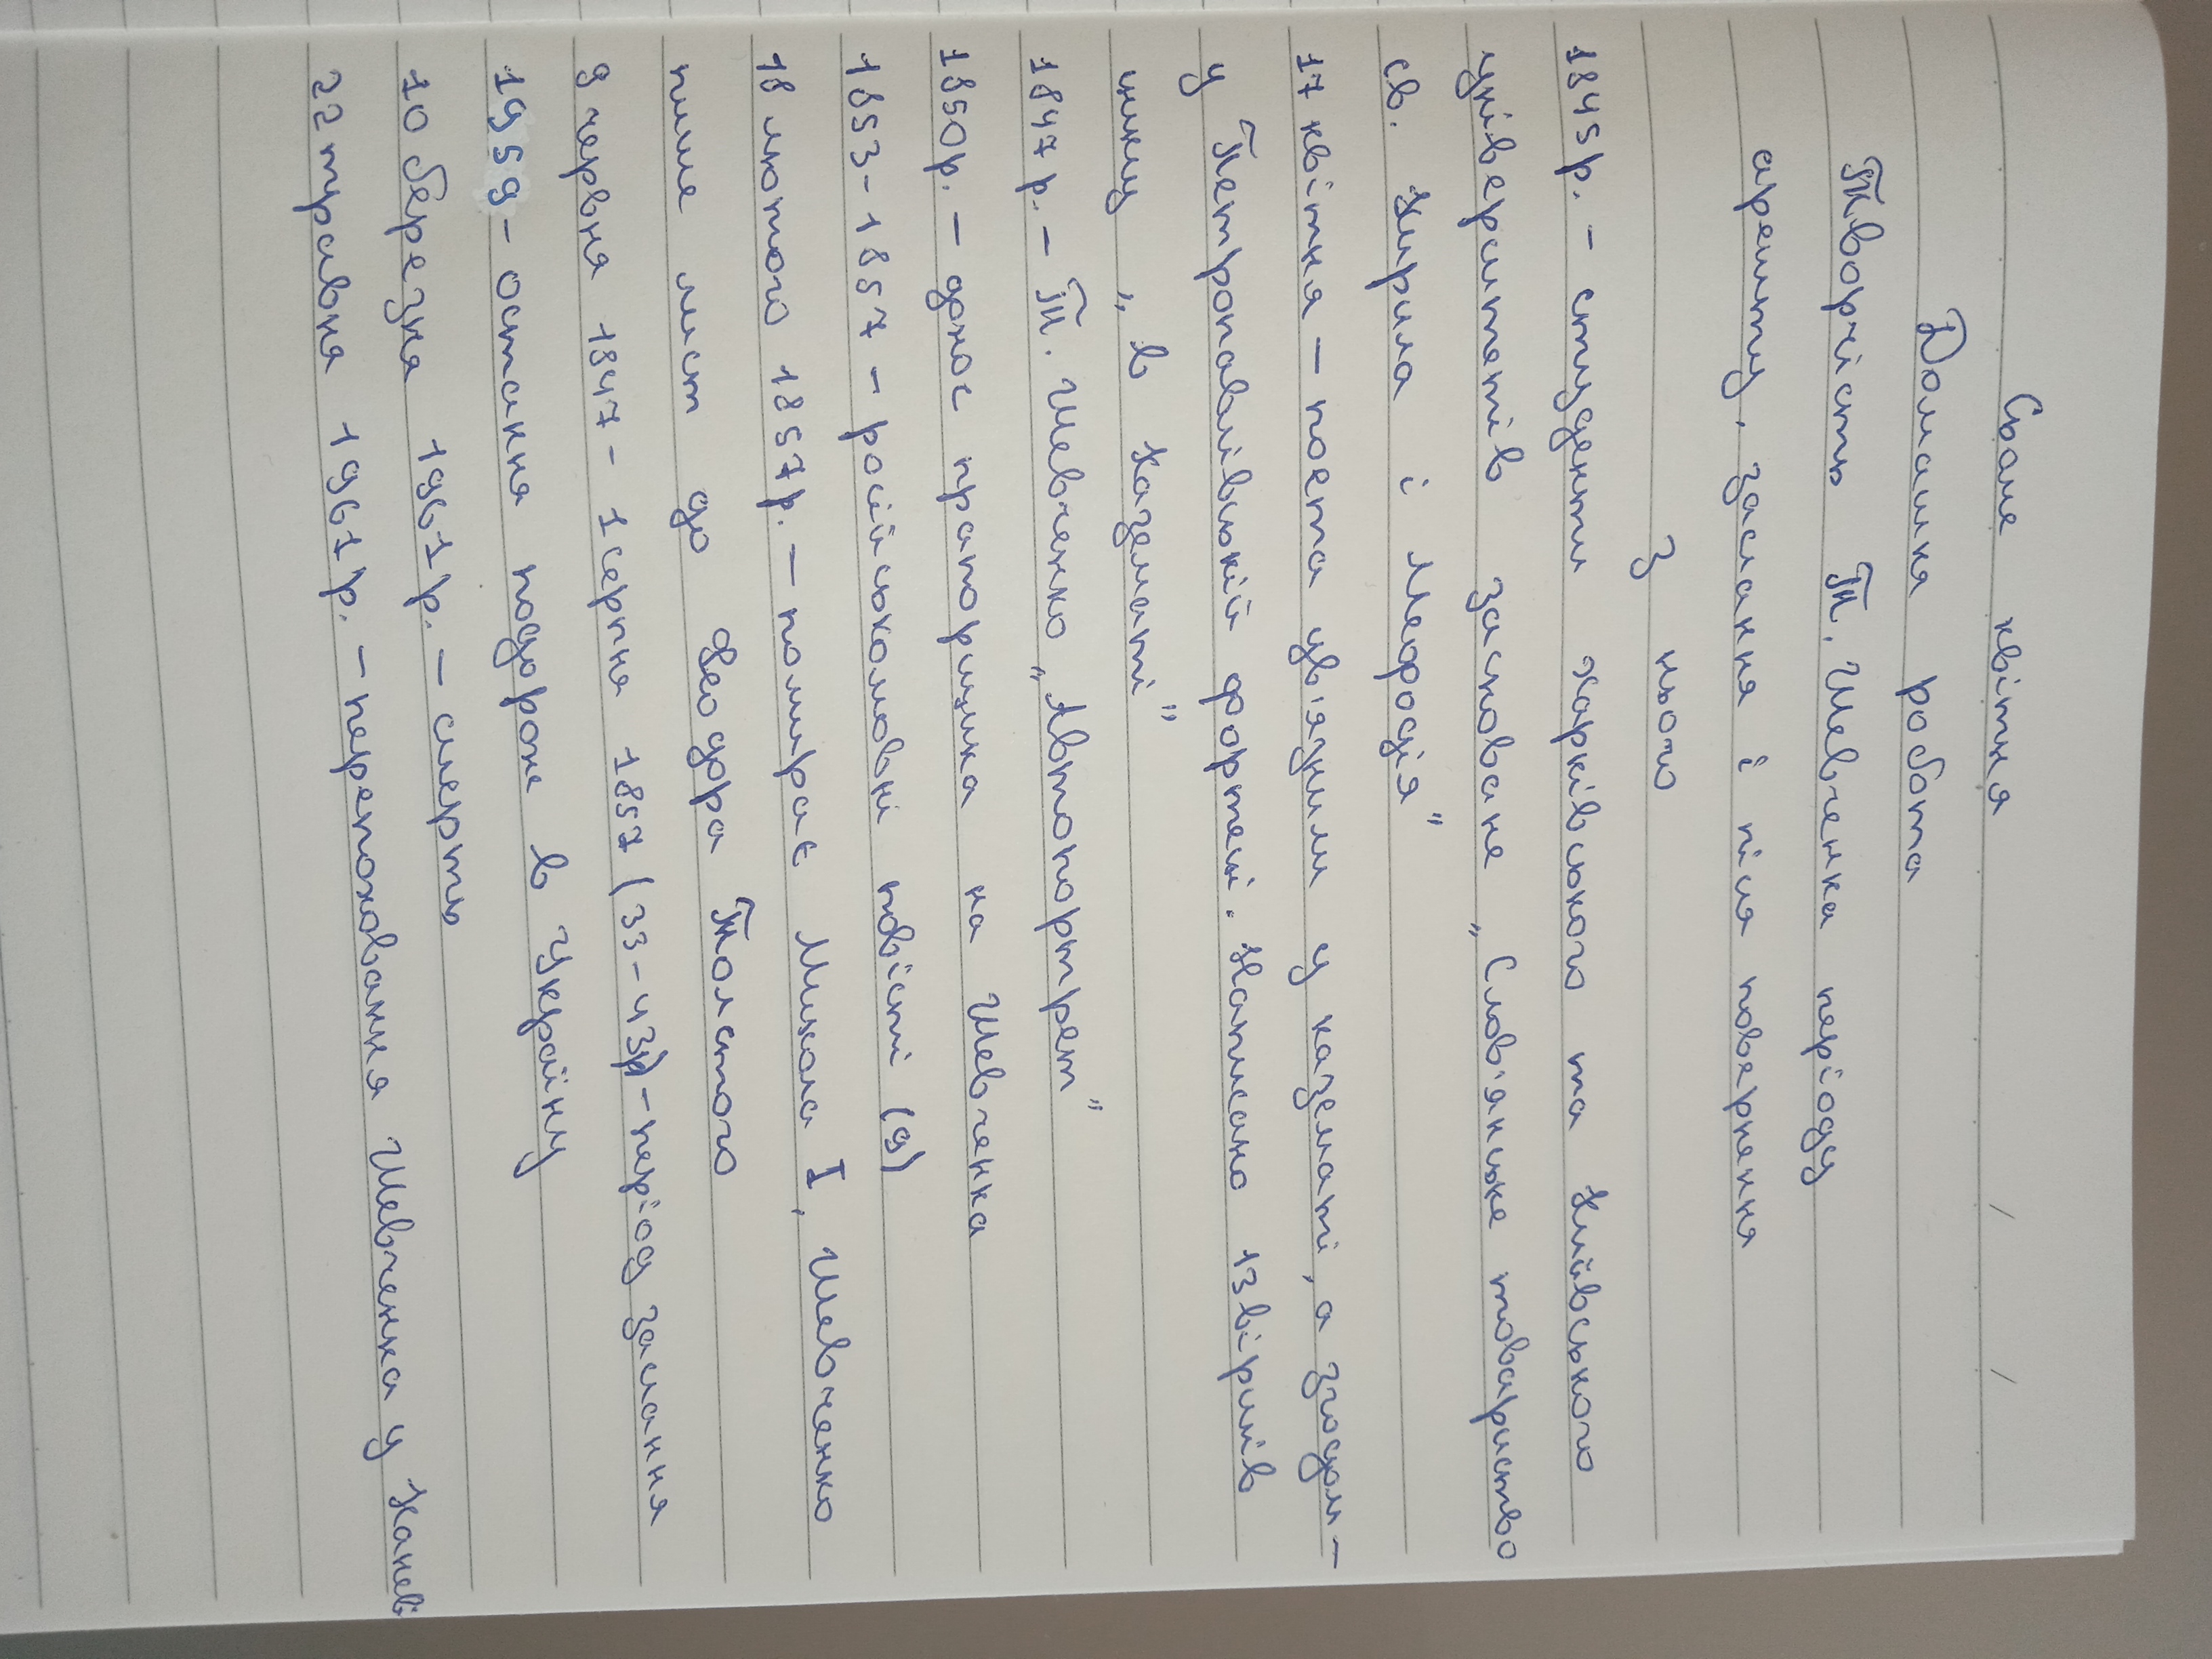 Сьоме квітня
Домашня робота
Творчість Т. Шевченка періоду
арешту, заслання і після повернення
з нього
1845р. – студенти Харківського та Київського
університетів засноване „Слов'янське товариство
св. Кирила і Мефодія"
17 квітня – поета ув'язнили у казематі, а згодом –
у Петропавлівській фортеці. Написано 13 віршів
циклу „В казематі"
1847р. – Т. Шевченко „Автопортрет"
1850р. – донос прапорщика на Шевченка
1853-1857 – російськомовні повісті (9)
18 лютого 1857р. – помирає Микола I, Шевченко
пише лист до Феодра Толстого
9 червня 1847 – 1 серпня 1857 (33-43р) – період заслання
1959 – остання подорож в Україну
10 березня 1961р. – смерть
22 травня 1961р. – перепоховання Шевченка у Каневі